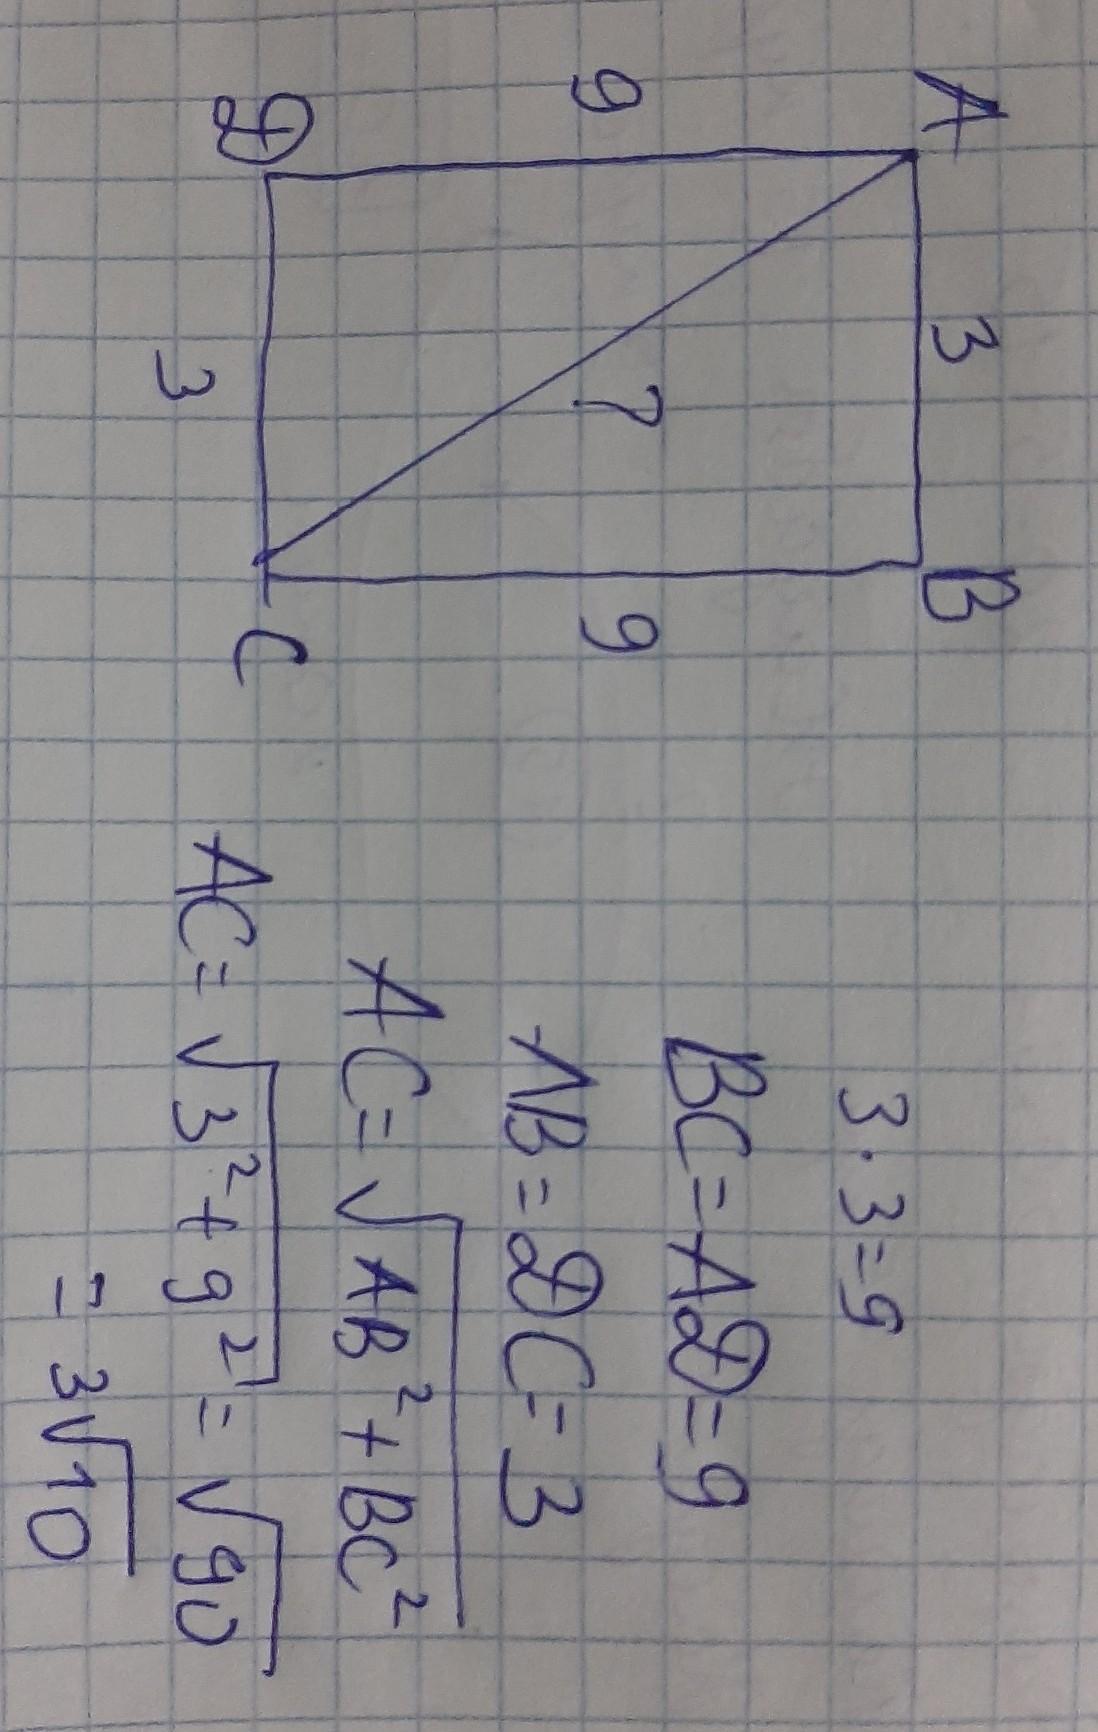 A
3
B
9
?
9
D
3
C
3·3=9
BC=AD=9
AB=DC=3
AC=√AB²+BC²
AC=√3²+9²=√90
=3√10